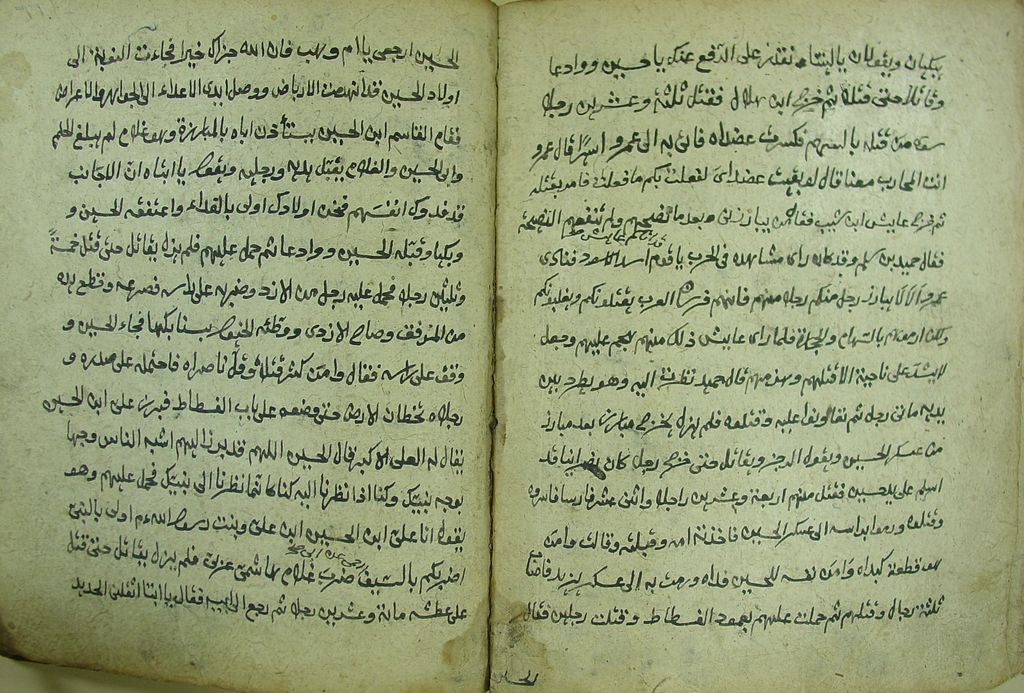 يبكيان ويقولان يا ابنتاه نقتدر على الدفع عنك يا حسين ووادعا
وقاتلا حتى قتلا ثم خرج ابن هلال فقتل ثلثة وعشرين رجلا
من قتله بالسهم فكسرت عضداه فاتى به الى عمرو اسيرا قال عمرو
انت المحارب معنا قال لو بقيت عضداى لفعلت بكم ما فعلت فامر بقتله
ثم خرج عابس ابن شبيب فقال من يبارزنى وبعد ما تصيحهم ولم تنفعهم النصيحة
فقال حميد بن مسلم وقد كان راى مشاهده فى الحرب يا قوم اسد الاسود فنادى
عمرو الا لا يبارز رجل منكم رجلا منهم فانهم فرسان العرب يقتلونكم ويغلبونكم
ولكن ارموهم بالسهام والحجارة فلما راى عابس ذلك منهم هجم عليهم وجعل
لا يشد على ناحية الا قتلهم وهزمهم قال حميد نظرت اليه وهو يطرد بين
يديه مائتى رجل ثم تعاونوا عليه وقتلوه فلم يزل يخرج مبارز بعد مبارز
من عسكر الحسين ويقول الرجز ويقاتل حتى خرج رجل كان نصرانيا قد
اسلم على يد حسين فقتل منهم اربعة وعشرين راجلا واثنى عشر فارسا فاسروه
وقتلوه ورموا براسه الى عسكر الحسين فاخذته امه وقبلته وقالت وا من
هو قطعة كبداه وا من نفسه للحسين فداه ورمت به الى عسكر يزيد فاصاب
ثلثة رجال وقتلهم ثم حملت عليهم بعمود الفسطاط وقتلت رجلين فقال
الحسين
الحسين ارجعى يا ام وهب فان الله جزاك خيرا فجاءت النوبة الى
اولاد الحسين فلما انتهت الارياض ووصل ايدى الاعداء الى الجواهر والاعراض
فقام القاسم ابن الحسين يستأذن اباه بالمبارزة وهو غلام لم يبلغ الحلم
وابى الحسين والغلام يقبل يديه ورجليه ويقول يا ابتاه ان الاجانب
قد فدوك انفسهم فنحن اولادك اولى بالفداء واعتنقه الحسين و
وبكيا وقبله الحسين ووادعا ثم حمل عليهم فلم يزل يقاتل حتى قتل خمسة
وثلثين رجلا فحمل عليه رجل من الازد وضربه على راسه فصرعه وقطع يده
من المرفق وصاح الازدى ووطئته الخيول بسنابكها فجاء الحسين و
وقف على راسه فقال وا من كثر قتلاه وقل ناصراه فاحتمله على صدره و
رجلاه يخطان الارض حتى وضعه على باب الفسطاط فبرز على ابن الحسين
يقال له العلى الاكبر قال الحسين اللهم قد برز اليهم اشبه الناس وجها
بوجه نبيك وكنا اذا نظرنا اليه كنا كانما نظرنا الى نبيك فحمل عليهم وهو
يقول انا على ابن الحسين ابن على وبنت رسول الله هم اولى بالنبى
اضربكم بالسيف ضرب غلام هاشمى عربى فلم يزل يقاتل حتى قتل
على عطشه مائة وعشرين رجلا ثم رجع الى ابيه فقال يا ابتا اثقلنى الحديد